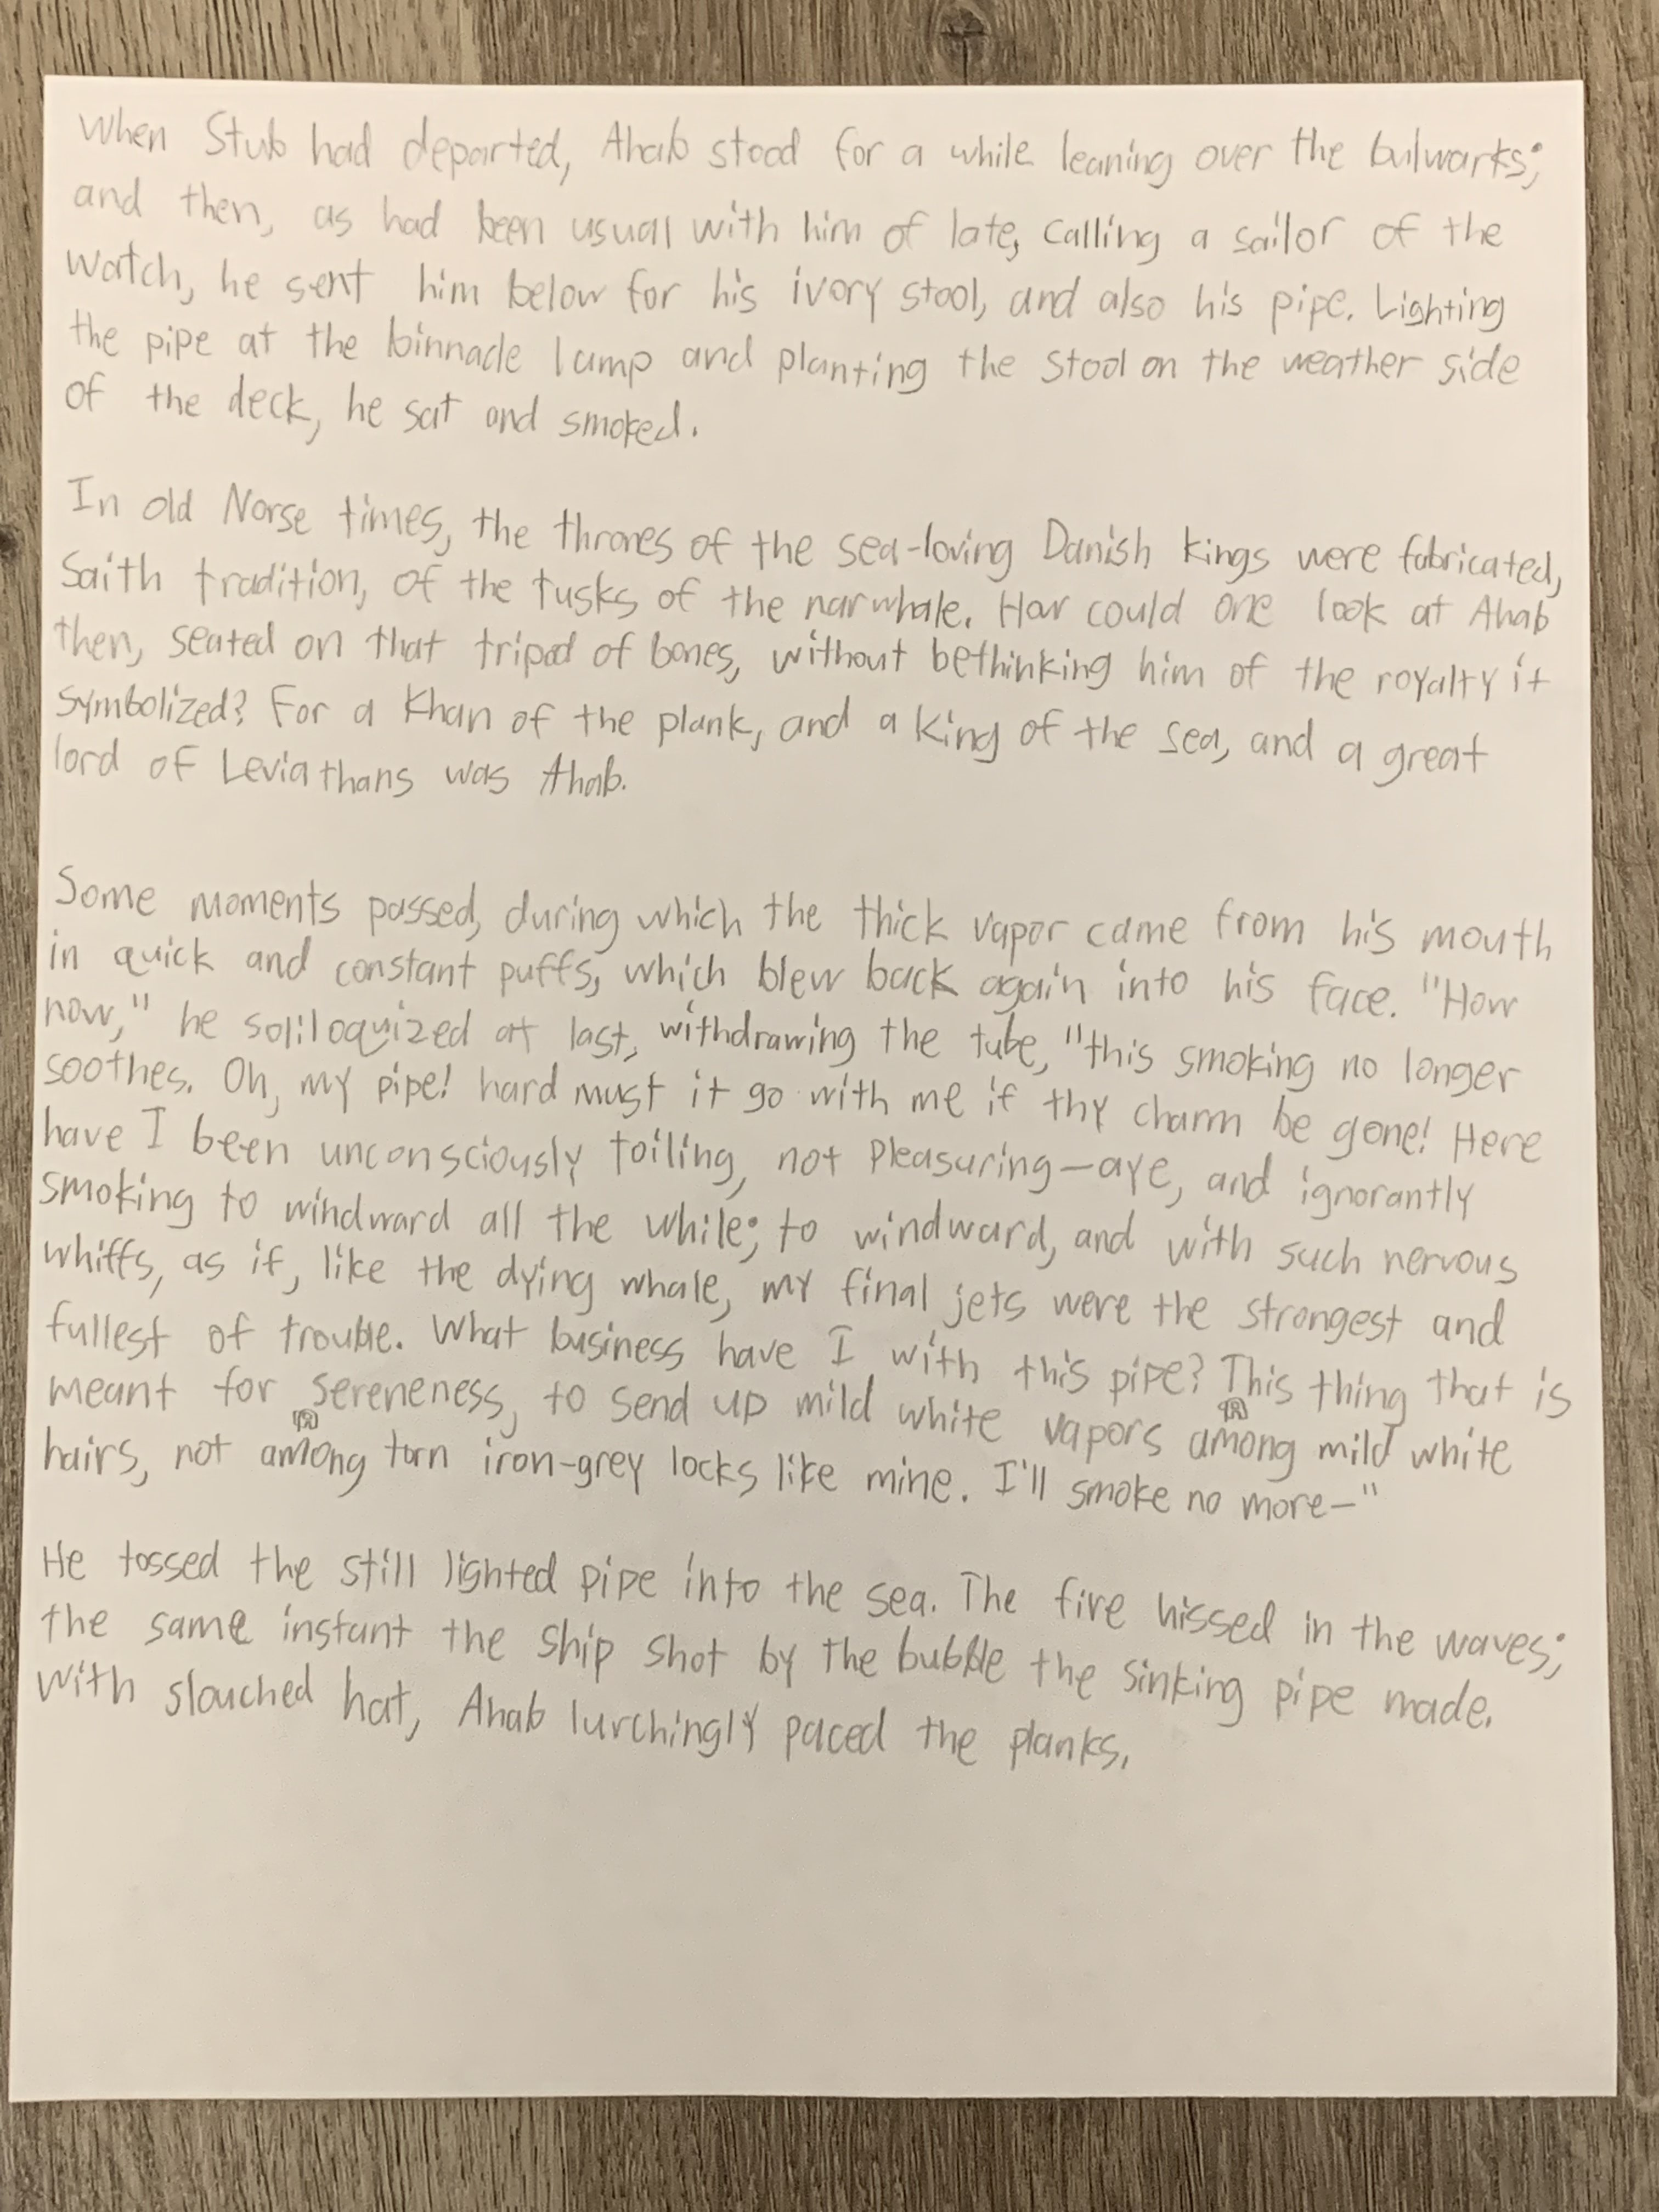 When Stub had departed, Ahab stood for a while leaning over the bulwarks;
and then, as had been usual with him of late, calling a sailor of the
watch, he sent him below for his ivory stool, and also his pipe. Lighting
the pipe at the binnacle lamp and planting the stool on the weather side
of the deck, he sat and smoked.
In old Norse times, the thrones of the sea-loving Danish kings were fabricated,
Saith tradition, of the tusks of the narwhale. How could one look at Ahab
then, seated on that tripod of bones, without bethinking him of the royalty it
symbolized? For a Khan of the plank, and a King of the sea, and a great
lord of Leviathans was Ahab.
Some moments passed, during which the thick vapor came from his mouth
in quick and constant puffs, which blew back again into his face. "How
now," he soliloquized at last, withdrawing the tube, "this smoking no longer
soothes. Oh, my pipe! hard must it go with me if thy charm be gone! Here
have I been unconsciously toiling, not Pleasuring—aye, and ignorantly
smoking to windward all the while; to windward, and with such nervous
whiffs, as if, like the dying whale, my final jets were the strongest and
fullest of trouble. What business have I with this pipe? This thing that is
meant for sereneness, to send up mild white vapors among mild white
hairs, not among torn iron-grey locks like mine. I'll smoke no more—"
He tossed the still lighted pipe into the sea. The fire hissed in the waves;
the same instant the ship shot by the bubble the sinking pipe made.
With slouched hat, Ahab lurchingly paced the planks.